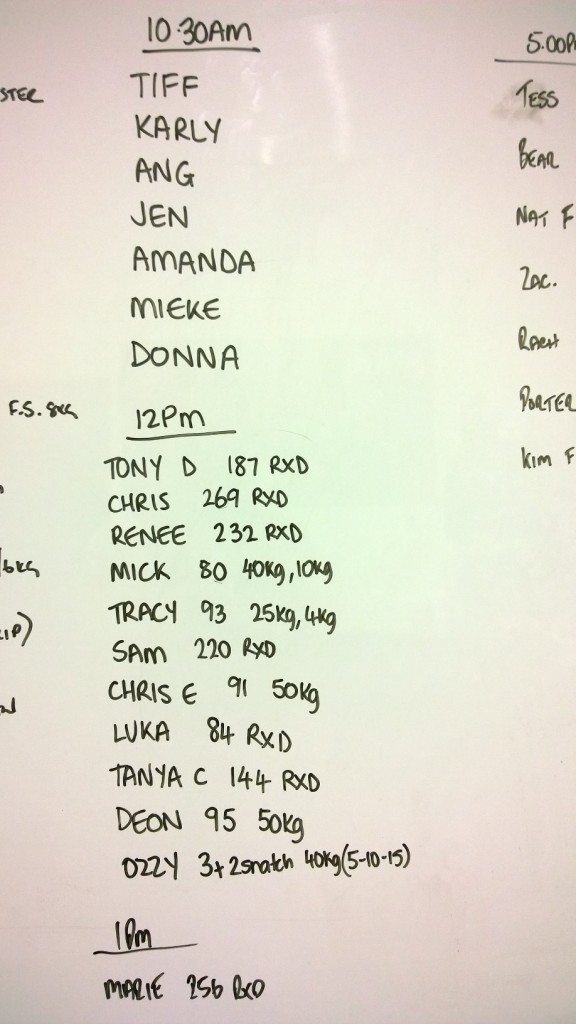 10:30AM
TIFF
KARLY
ANG
JEN
AMANDA
MIEKE
DONNA
12Pm
TONY D 187 RXD
CHRIS 269 RXD
RENEE 232 RXD
MICK 80 40kg, 10kg
TRACY 93 25kg, 4kg
SAM 220 RXD
CHRIS E 91 50kg
LUKA 84 RXD
TANYA C 144 RXD
DEON 95 50kg
OZZY 3+2snatch 40kg (5-10-15)
1Pm
MARIE 256 RXD
STER
F.S. 8KG
5.00P
TESS
BEAR
NAT F
ZAC.
RACH
PORTER
KIM F